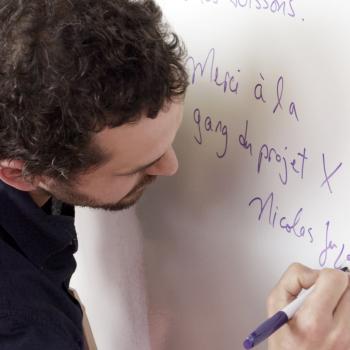 boissons.
Merci à la
gang du projet X
Nicolas